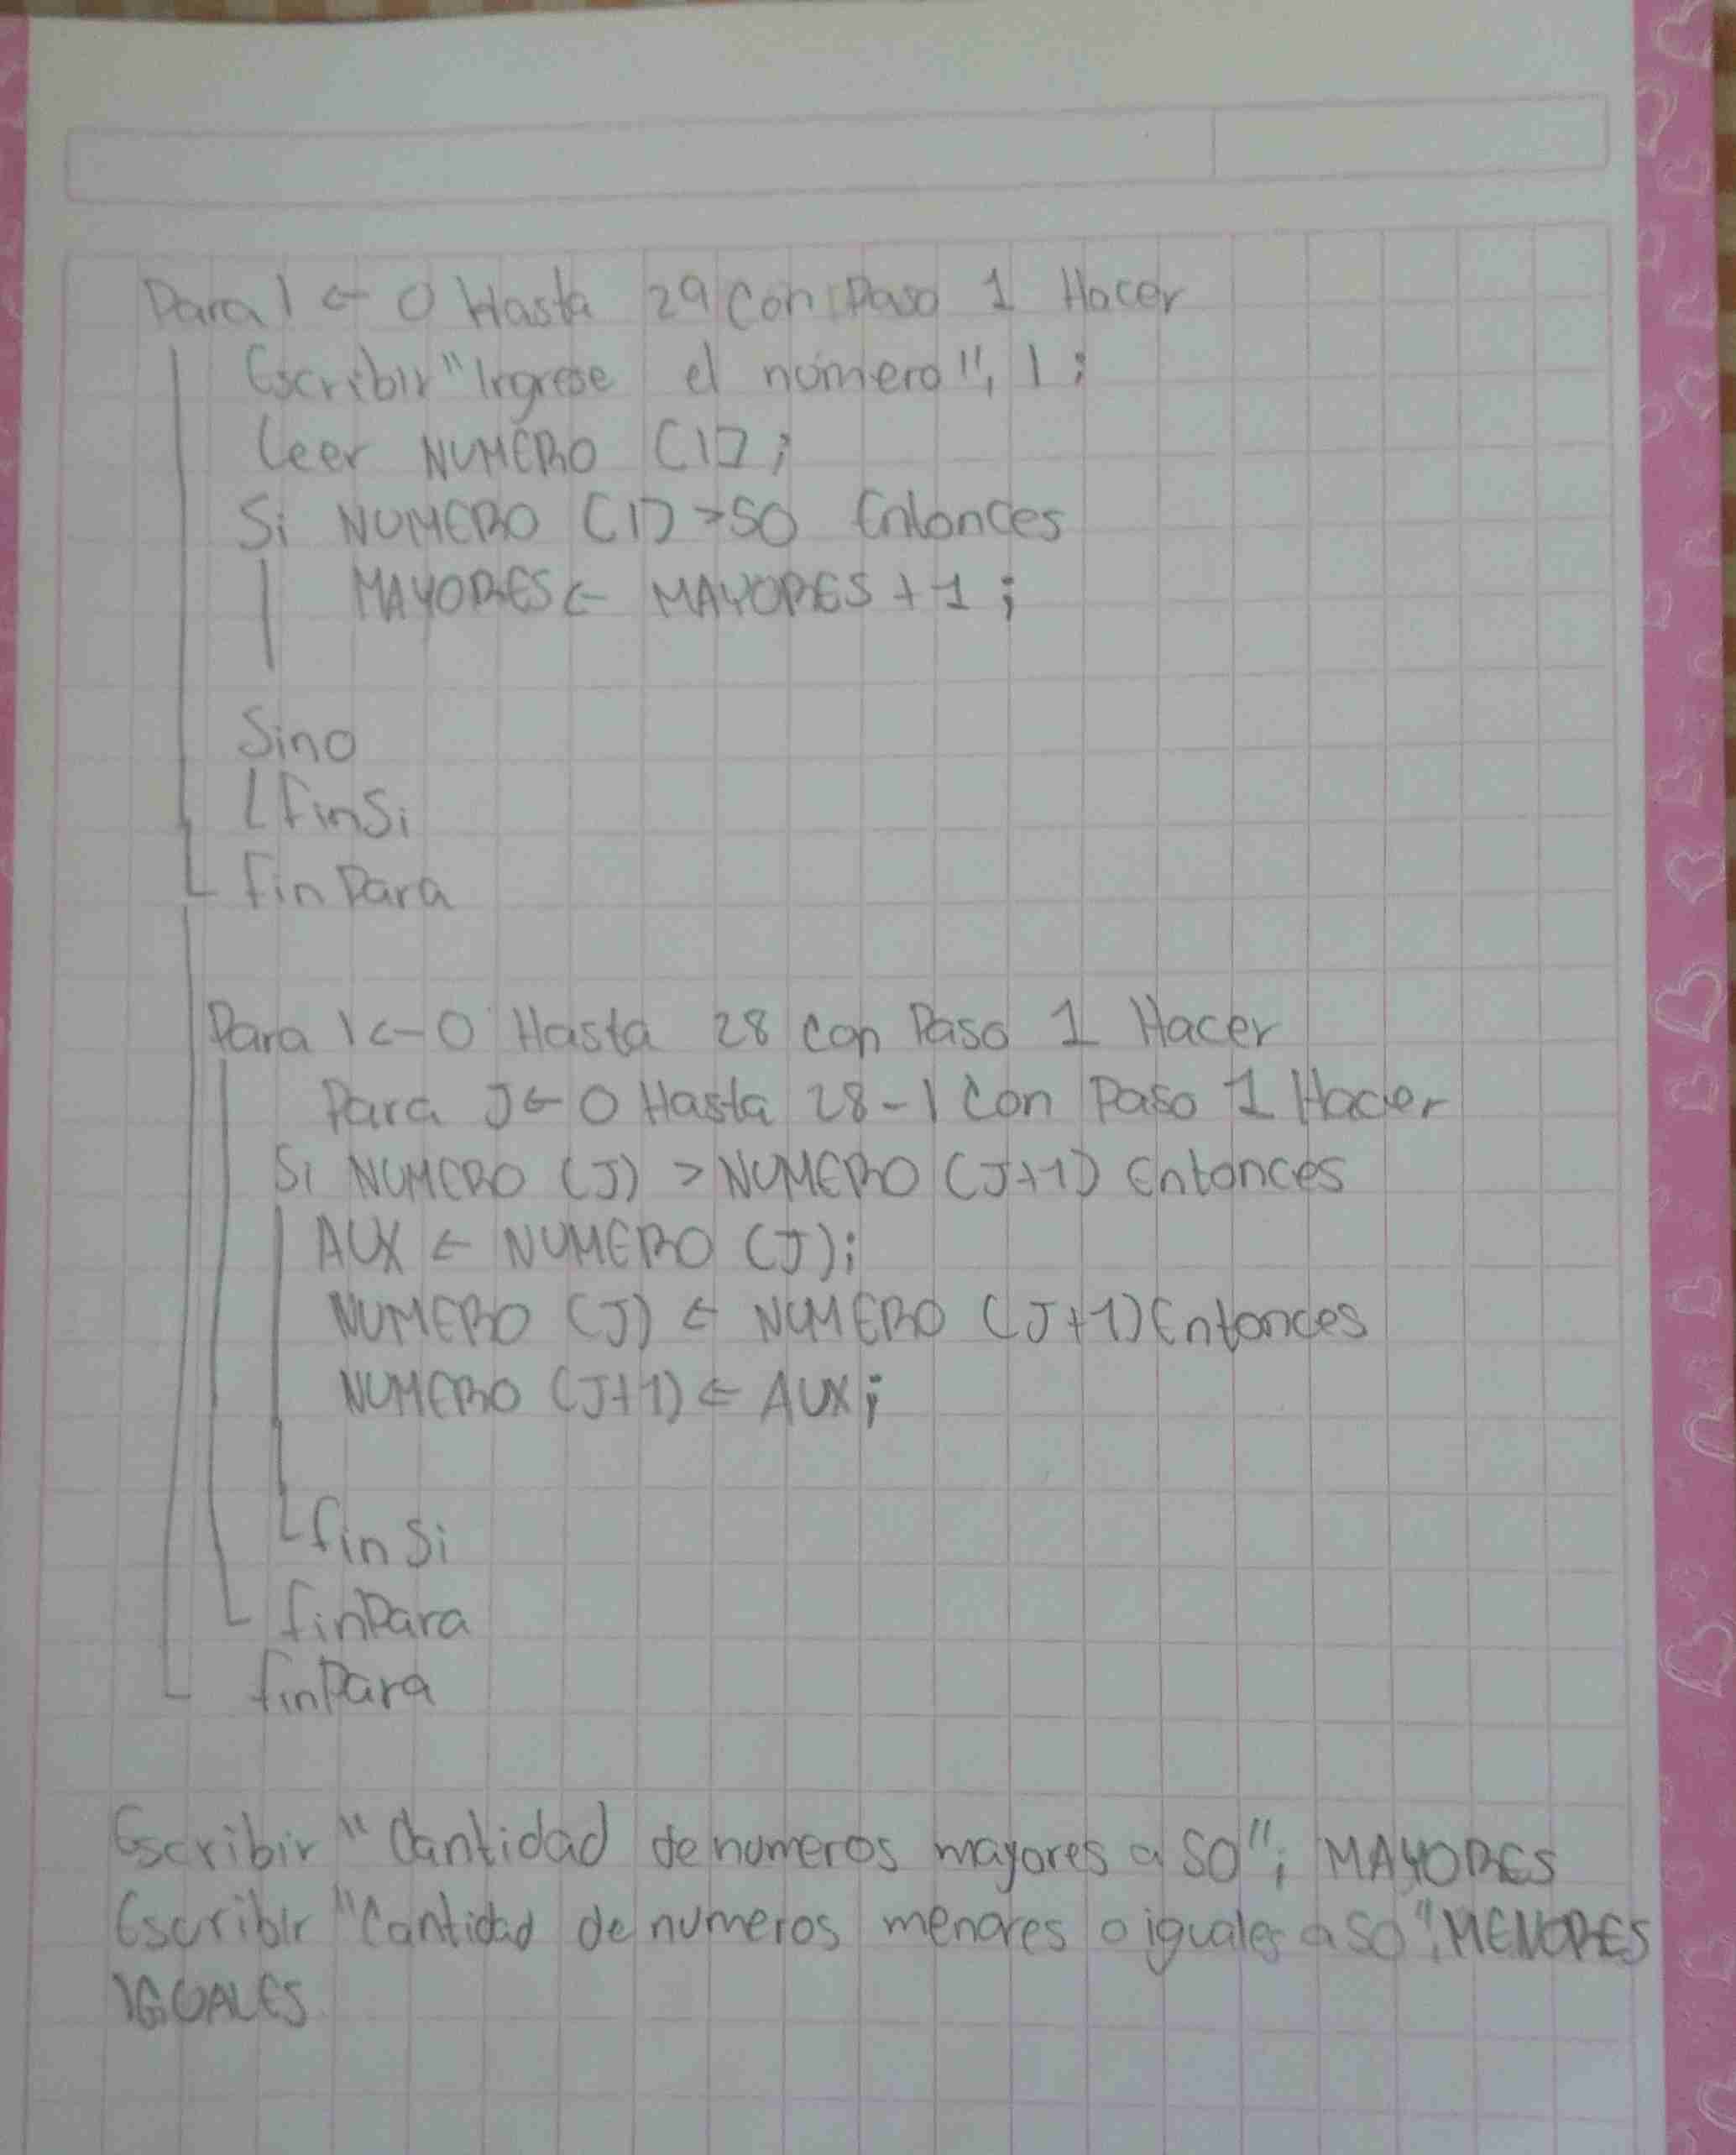 Para I ← 0 Hasta 29 Con Paso 1 Hacer
Escribir "Ingrese el número", I ;
Leer NUMERO [I] ;
Si NUMERO [I] > 50 Entonces
MAYORES ← MAYORES + 1 ;
Sino
finSi
fin Para
Para I <- 0 Hasta 28 con Paso 1 Hacer
Para J ← 0 Hasta 28 - I Con Paso 1 Hacer
Si NUMERO (J) > NUMERO (J+1) Entonces
AUX ← NUMERO (J);
NUMERO (J) ← NUMERO (J+1) Entonces
NUMERO (J+1) ← AUX ;
fin Si
finPara
finPara
Escribir "Cantidad de numeros mayores a 50"; MAYORES
Escribir "Cantidad de numeros menores o iguales a 50", MENORES
IGUALES